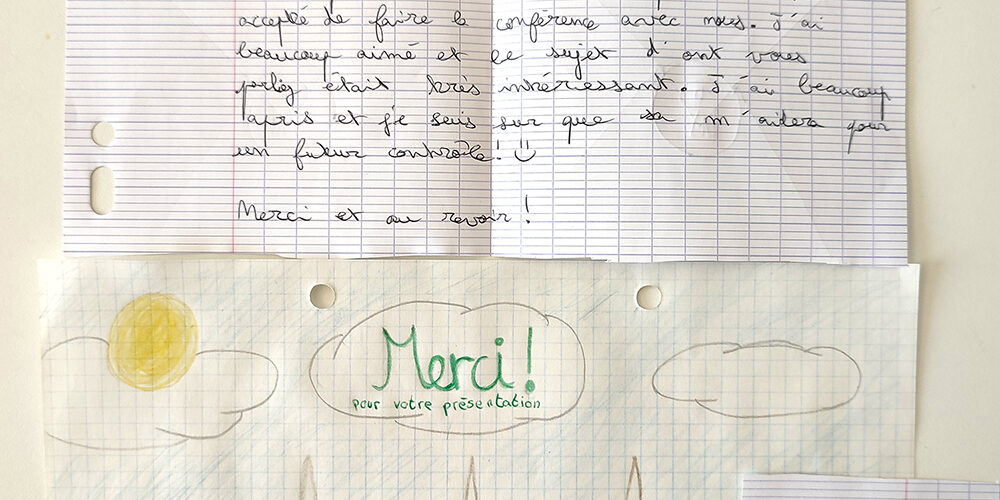 accepté de faire la conférence avec nous. J'ai
beaucoup aimé et le sujet d'ont vous
parliez était très intéressant. J'ai beaucoup
apris et je suis sur que sa m'aidera pour
un futur contrôle! :)
Merci et au revoir!
Merci!
pour votre présentation